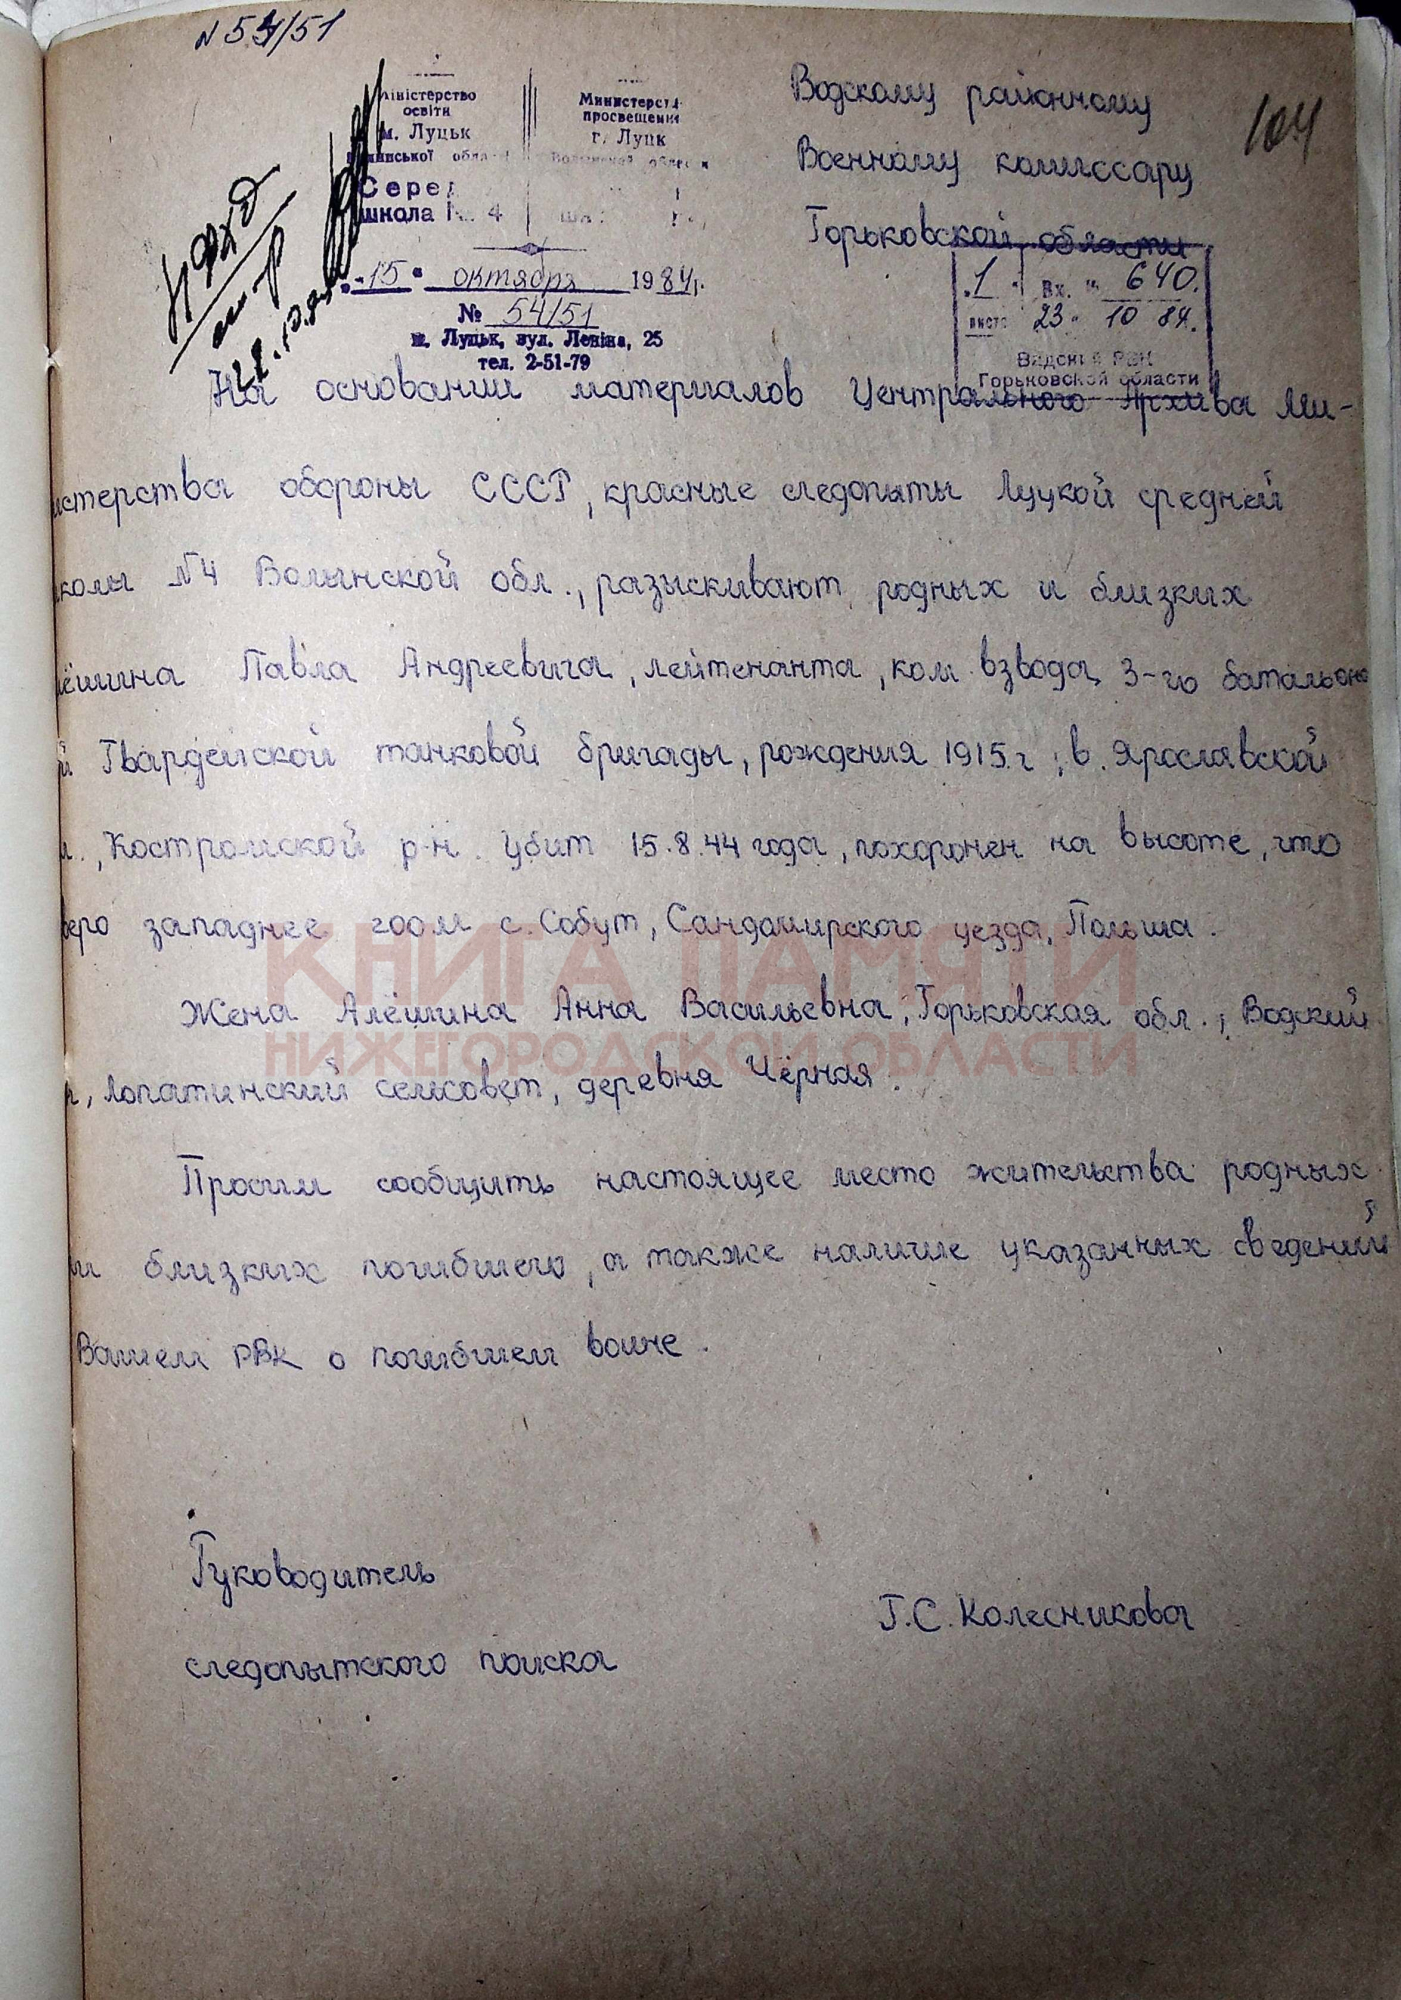 N 54/51
Міністерство
освіти
м. Луцьк
Волинської області
Серед
школа № 4
Министерст
просвещени
г. Луцк
"15" октября 1984 г.
№ 54/51
м. Луцьк, вул. Леніна, 25
тел. 2-51-79
Водскому районному
Военному комиссару
Горьковской области
104
1 Вх. № 640.
листо 23 " 10 84.
РВК
Горьковской области
На основании материалов Центрального Архива Ми-
истерства обороны СССР, красные следопыты Луцкой средней
колы N4 Волынской обл., разыскивают родных и близких
лёшина Павла Андреевича, лейтенанта, ком. взвода 3-го батальона
й Гвардейской танковой бригады, рождения 1915 г., в. Ярославской
л., Костромской р-н. Убит 15.8.44 года, похоронен на высоте, что
веро западнее 200 м с. Собут, Сандомирского уезда, Польша.
Жена Алёшина Анна Васильевна, Горьковская обл., Водский
н, Лопатинский сельсовет, деревня Чёрная.
Просим сообщить настоящее место жительства родных
и близких погибшего, а также наличие указанных сведений
Вашем РВК о погибшем воине.
Руководитель
следопытского поиска
Г.С. Колесникова
КНИГА ПАМЯТИ
НИЖЕГОРОДСКОЙ ОБЛАСТИ